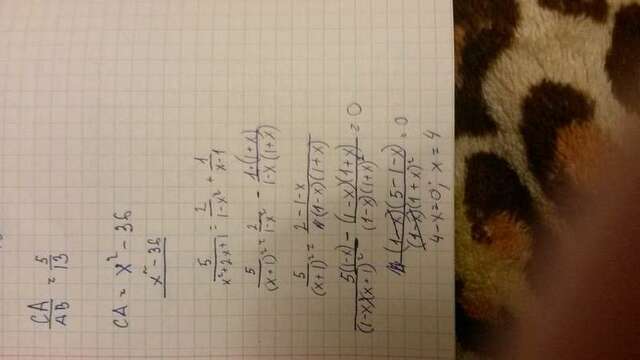 CA/AB = 5/13
CA = x² - 36
x² - 36
5/(x²+2x+1) = 2/(1-x²) + 1/(x-1)
5/(x+1)² = 2/(1-x²) - 1·(1+x)/(1-x)(1+x)
5/(x+1)² = (2-1-x)/(1-x)(1+x)
5(1-x)/(1-x)(x+1)² - (1-x)(1+x)/(1-x)(1+x)² = 0
(1-x)(5-1-x)/(1-x)(1+x)² = 0
4-x=0; x=4